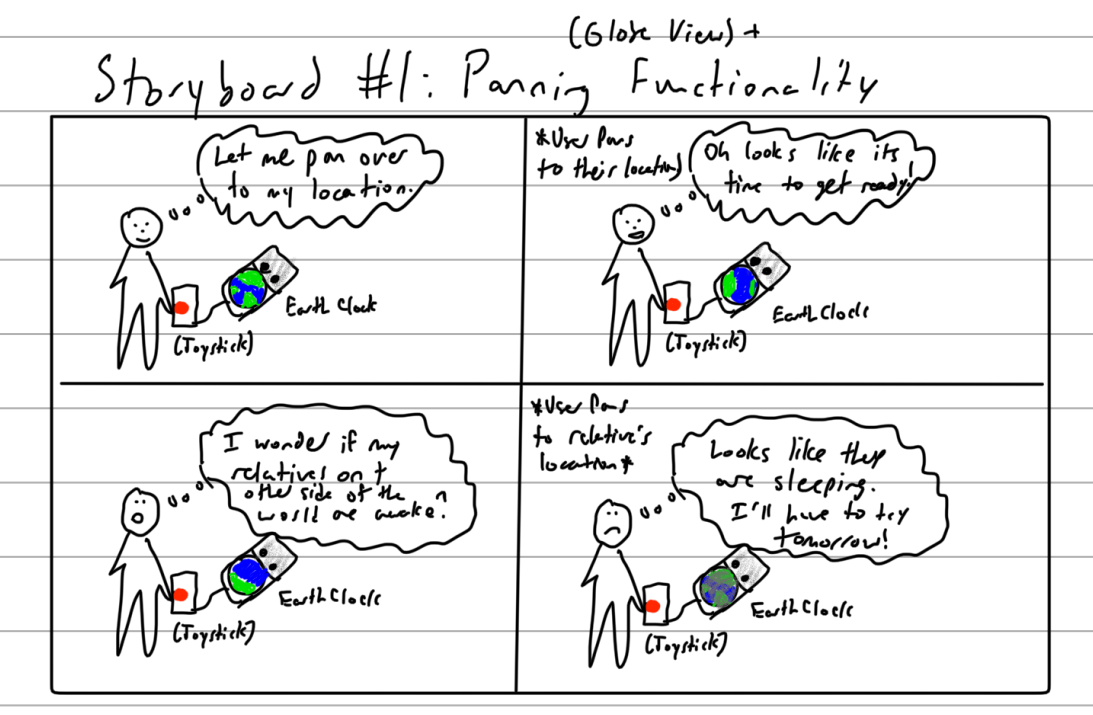 (Globe View) +
Storyboard #1: Panning Functionality
Let me pan over
to my location.
Earth Clock
(Joystick)
*User Pans
to their location)
Oh looks like its
time to get ready!
Earth Clock
(Joystick)
I wonder if my
relatives on t
other side of the
world are awake.
Earth Clock
(Joystick)
*User Pans
to relative's
location*
Looks like they
are sleeping.
I'll have to try
tomorrow!
Earth Clock
(Joystick)